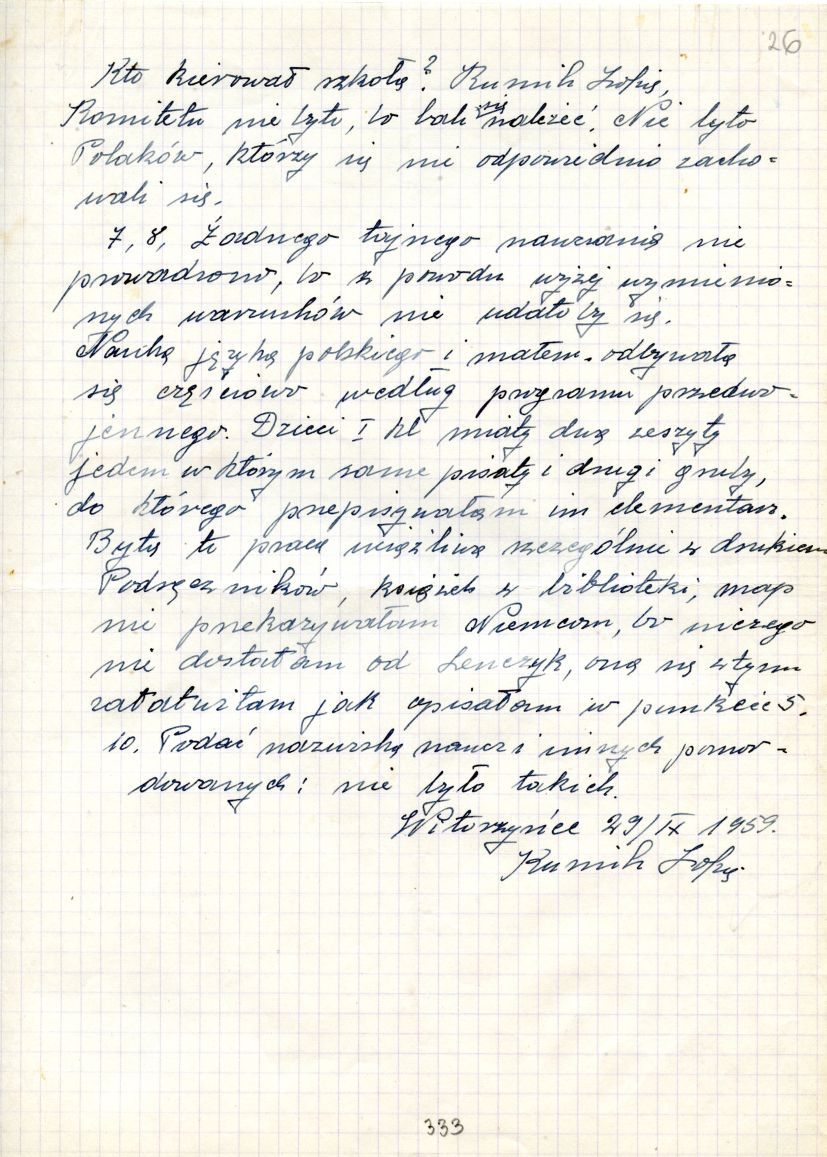 26
Kto kierował szkołą? Kumik Zofia,
Komitetu nie było, bo bali się należeć. Nie było
Polaków, którzy się nie odpowiednio zacho=
wali się.
7, 8, Żadnego tajnego nauczania nie
prowadzono, bo z powodu wyżej wymienio=
nych warunków nie udało by się.
Nauka języka polskiego i matem. odbywała
się częściowo według programu przedwo-
jennego. Dzieci I kl miały dwa zeszyty
jeden w którym same pisały i drugi gruby,
do którego przepisywałam im elementarz.
Była to praca uciążliwa szczególnie z drukiem
Podręczników, książek z biblioteki, map
nie przekazywałam Niemcom, bo niczego
nie dostałam od Lenczyk, ona się z tym
załatwiłam jak opisałam w punkcie 5.
10. Podać nazwiska naucz i innych pomor-
dowanych: nie było takich.
Witoszyńce 29/IX 1959.
Kumik Zofia
333